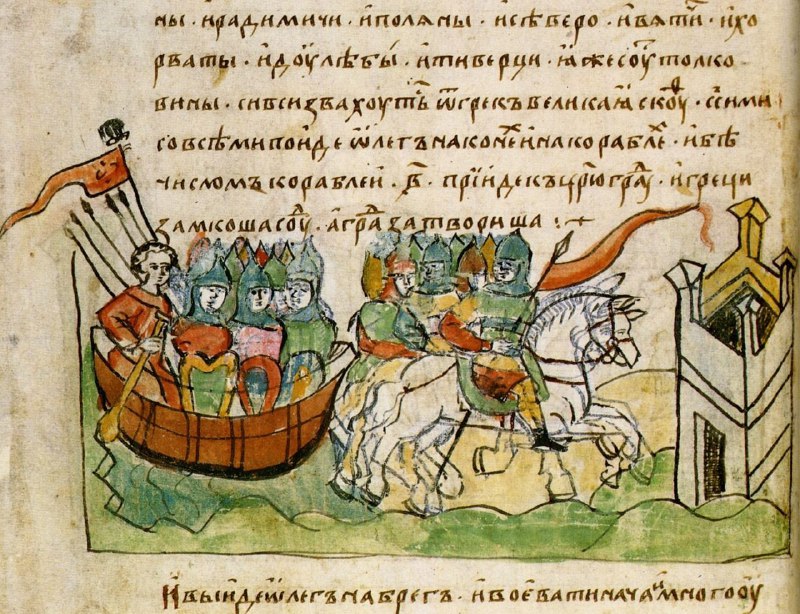 ны · и радимичи · и полѧны · и сѣверо · и вѧтиⷱ · и хо
рваты · и доулѣбы · и тиверци · ꙗже соуⷮ толко
вины · си вси звахоутьⷭ ѿ грекъ великаꙗ скоуⷴ · с сими
со всѣми поиде ѡлегъ на конеⷯ и на кораблеⷯ · и бѣ
числомъ кораблеи · в҃ · прїиде къ цр҃югрⷶ · и греци
замкоша соуⷣ · а граⷣ затвориша
И выиде ѡлегъ на брегъ · и воевати нача и много оу